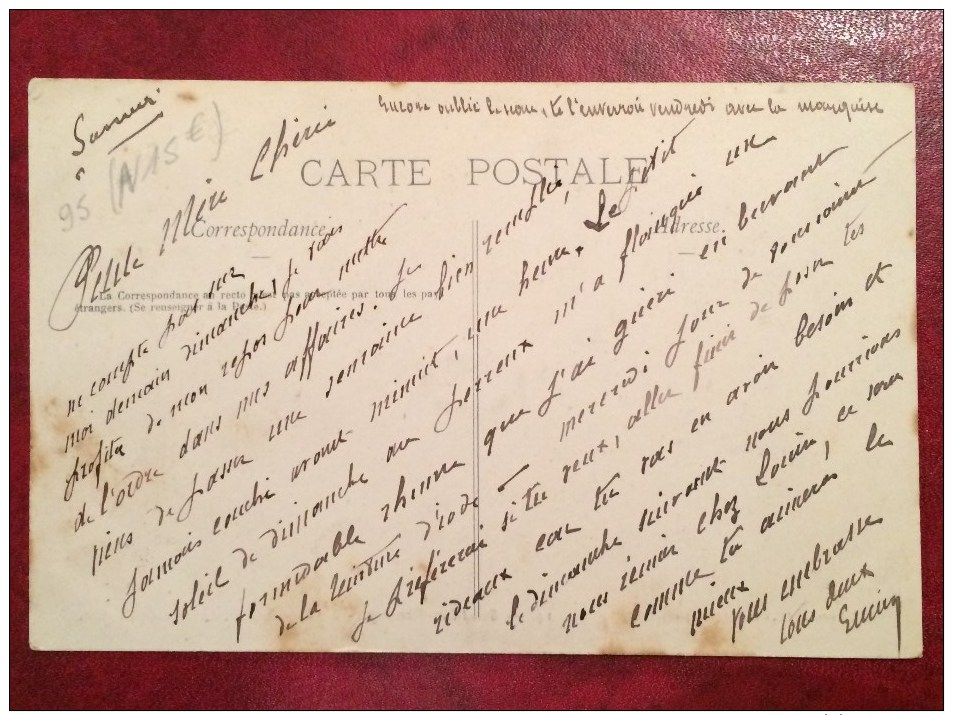 Samedi
95 (N15€)
oublié la sienne, te l'enverrai vendredi avec la marquise
CARTE POSTALE
Correspondance
Adresse.
La Correspondance au recto n'est pas acceptée par tous les pays
étrangers. (Se renseigner à la Poste.)
Petite Mère Chérie
ne compte pas sur
moi demain dimanche, je vais
profiter de mon repos pour mettre
de l'ordre dans mes affaires. Je
viens de passer une semaine bien remplie,
jamais couché avant minuit, une heure. Le petit
soleil de dimanche au Perreux m'a flanqué un
formidable rhume que j'ai guéri en buvant
de la teinture d'iode
mercredi jour de
Je préférerai si tu veux, aller finir de poser tes
rideaux car tu vas en avoir besoin et
le dimanche suivant nous pourrions
nous réunir chez Louis, ce sera
comme tu aimeras le
mieux
vous embrasse
tous deux